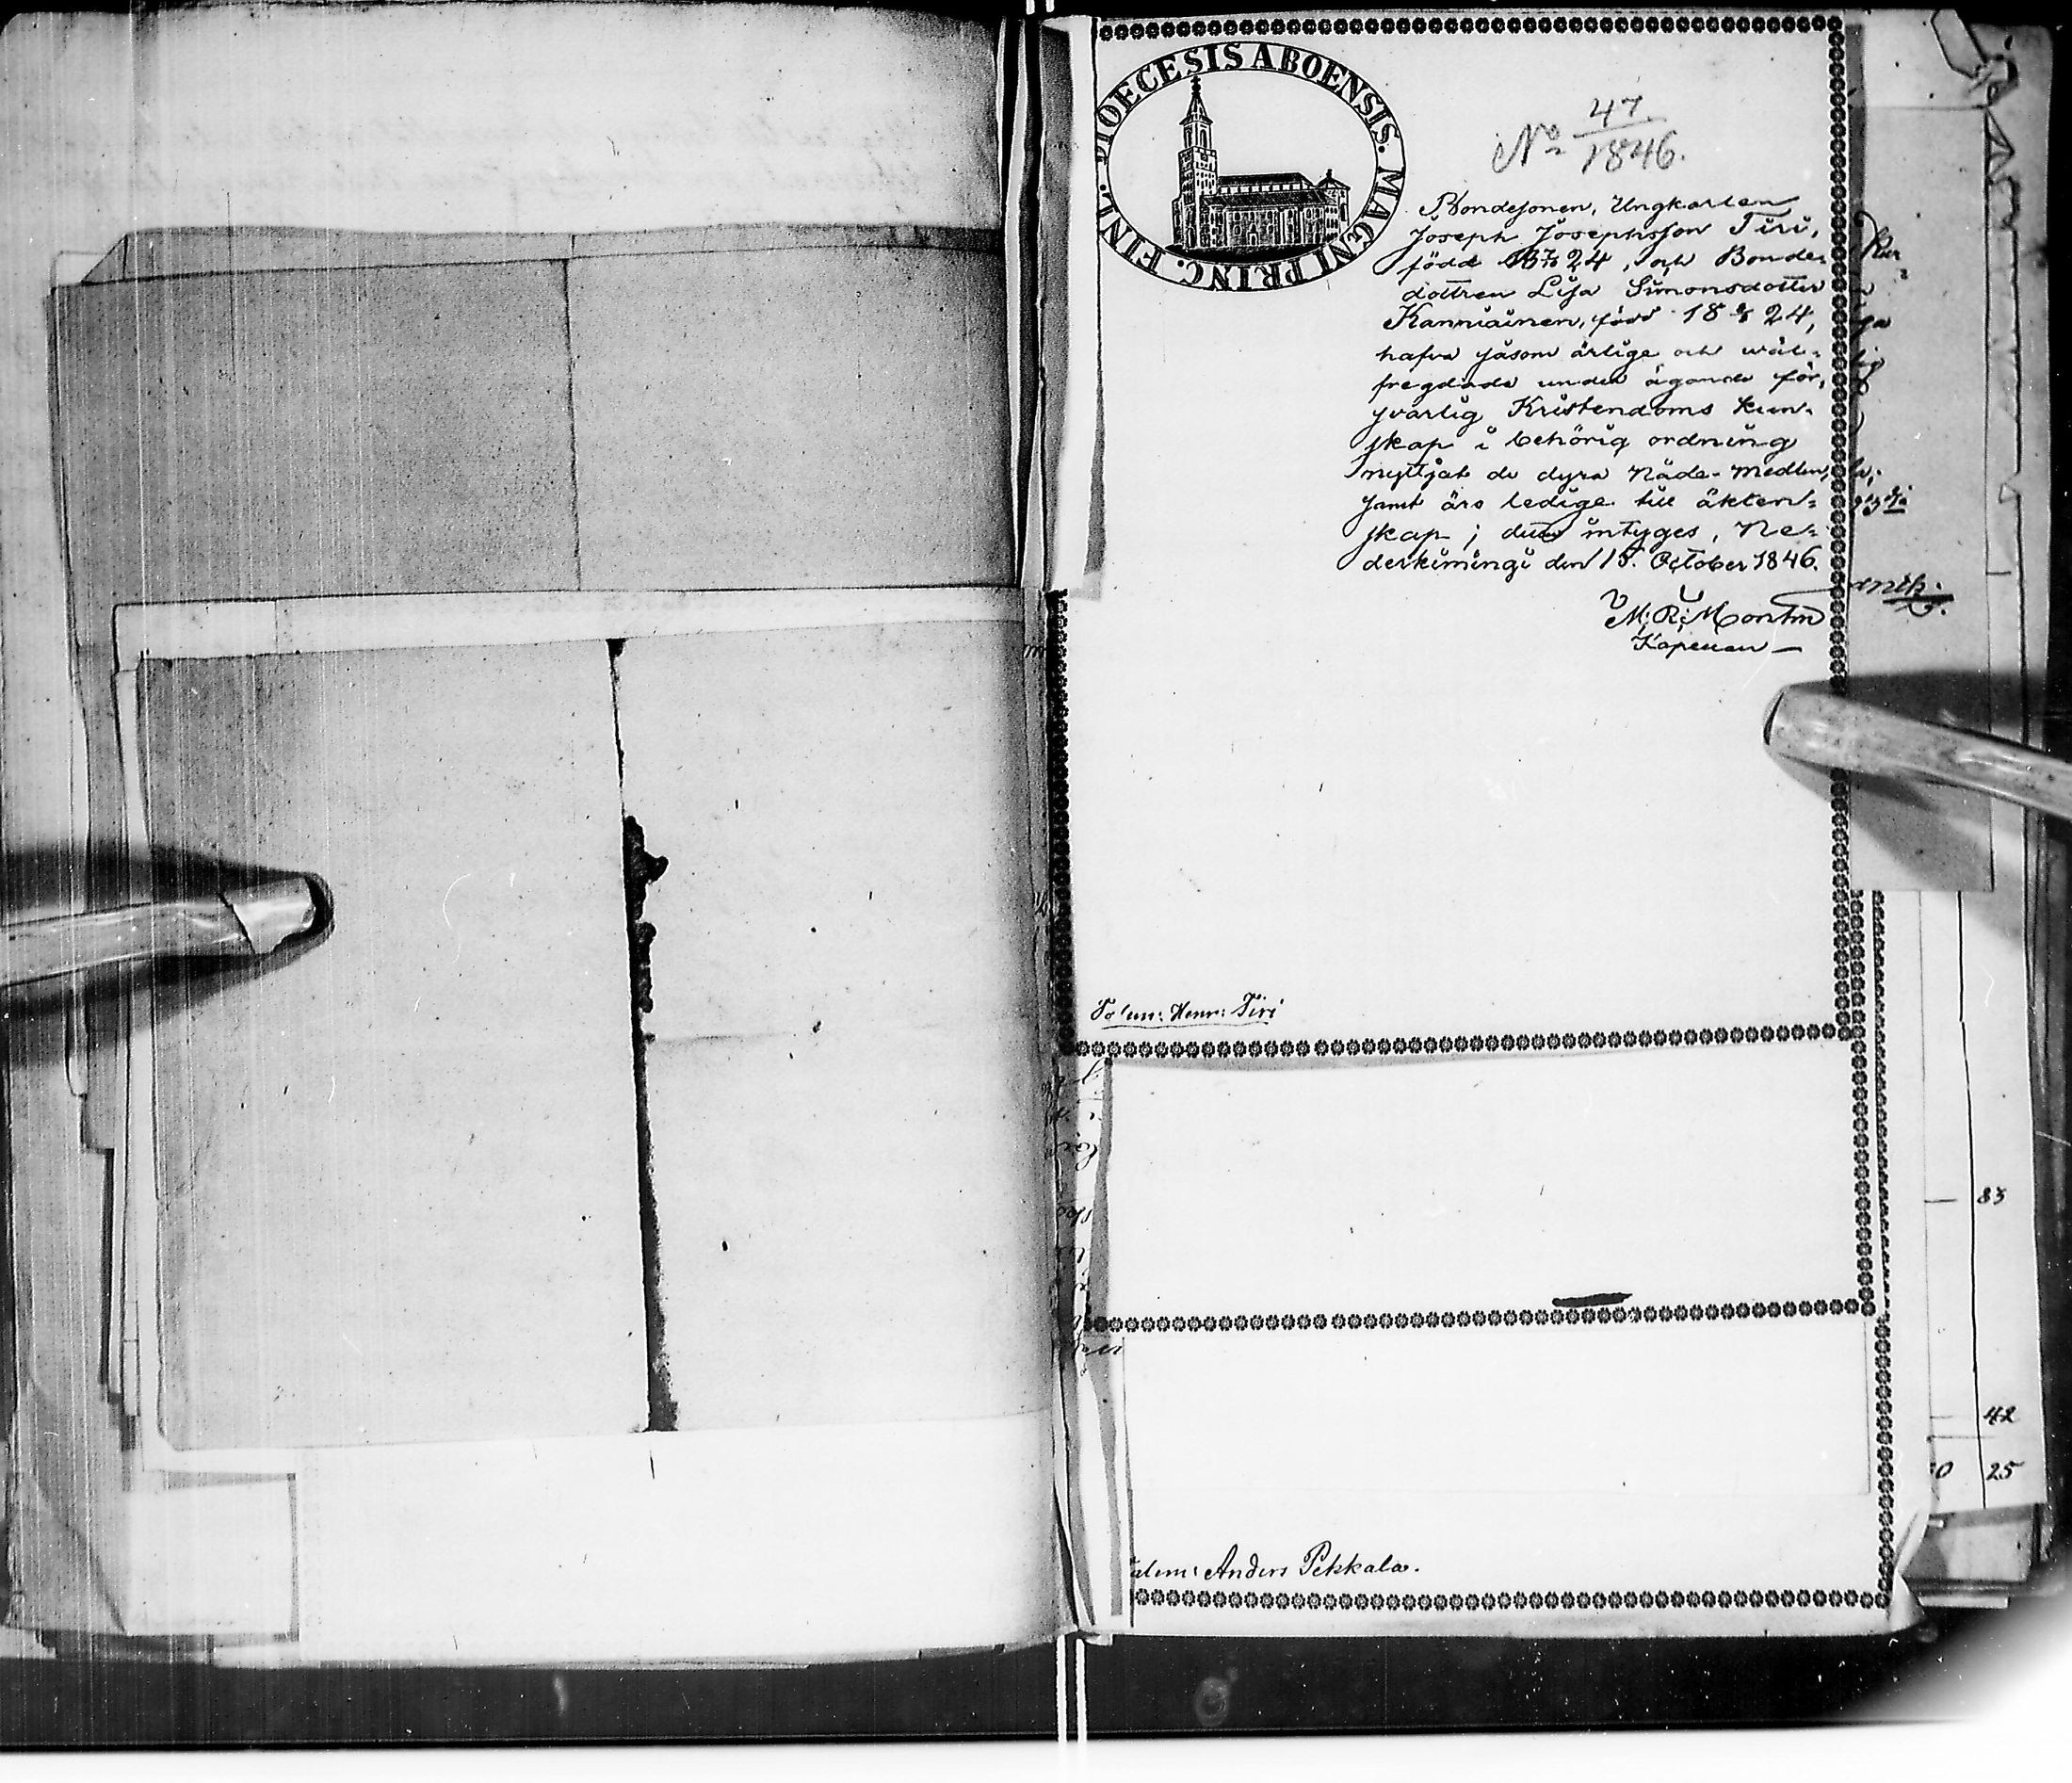 DIOECESIS ABOENSIS. MAGNI PRINC. FINL.
No 47
1846.
Bondesonen, Ungkarlen
Joseph Josephsson Tiri,
född 24, och Bonde-
dottren Lisa Simonsdotter
Kanniainen, född 18 24,
hafva såsom ärlige och wäl-
fregdade under ägande för-
svarlig Kristendoms kun-
skap i behörig ordning
nyttjat de dyra Nåde-Medlen,
samt äro ledige till äkten-
skap; intyges, Ne-
derkimingi den 15. October 1846.
M: R: Montin
Kapellan
Henr: Tiri
83
42
25
Anders Pekkala.